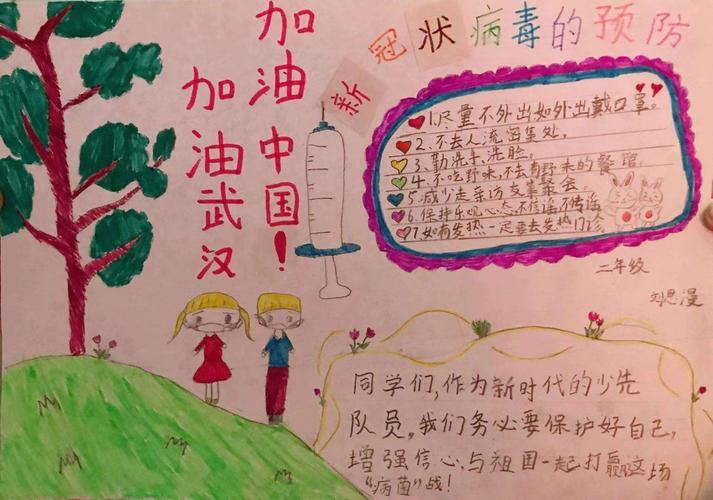 新冠状病毒的预防
加油中国！
加油武汉
1.尽量不外出如外出戴口罩。
2.不去人流密集处。
3.勤洗手、洗脸。
4.不吃野味,不去有野味的餐馆
5.减少走亲访友集聚会。
6.保持乐观心态不信谣不传谣
7.如有发热一定要去发热门诊。
二年级
刘思漫
同学们,作为新时代的少先
队员,我们务必要保护好自己,
增强信心,与祖国一起打赢这场
“病菌”战!